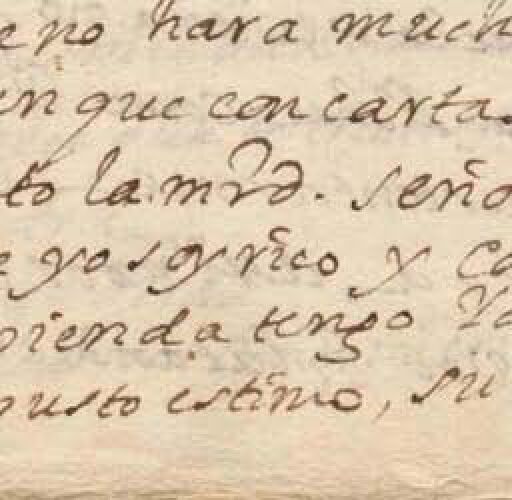 eno hara much
en que con carta.
to la mrd. Seño
e yo soy rico y Ca
pienda tengo Ya
busto estimo, su